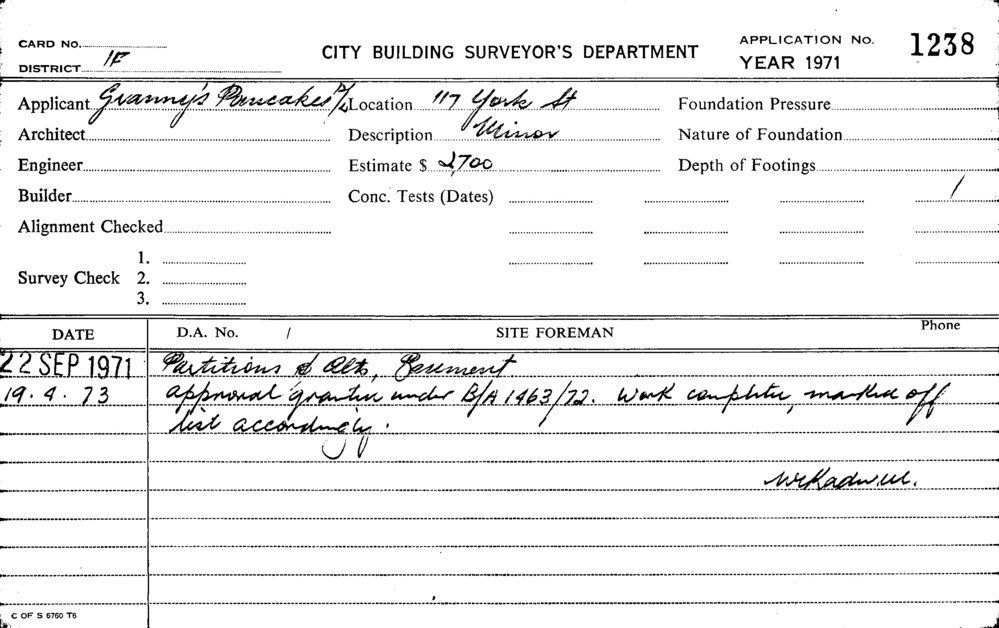 CARD NO.
DISTRICT 1F
CITY BUILDING SURVEYOR'S DEPARTMENT
APPLICATION No. 1238
YEAR 1971
Applicant Granny's Pancakes P/L Location 117 York St Foundation Pressure
Architect Description Minor Nature of Foundation
Engineer Estimate $ 2,700 Depth of Footings
Builder Conc. Tests (Dates) /
Alignment Checked
1.
Survey Check 2.
3.
DATE D.A. No. / SITE FOREMAN Phone
22 SEP 1971 Partitions & Alts, Basement
19.4.73 approval granted under B/A 1463/72. Work complete, marked off
list accordingly.
C OF S 6760 T6